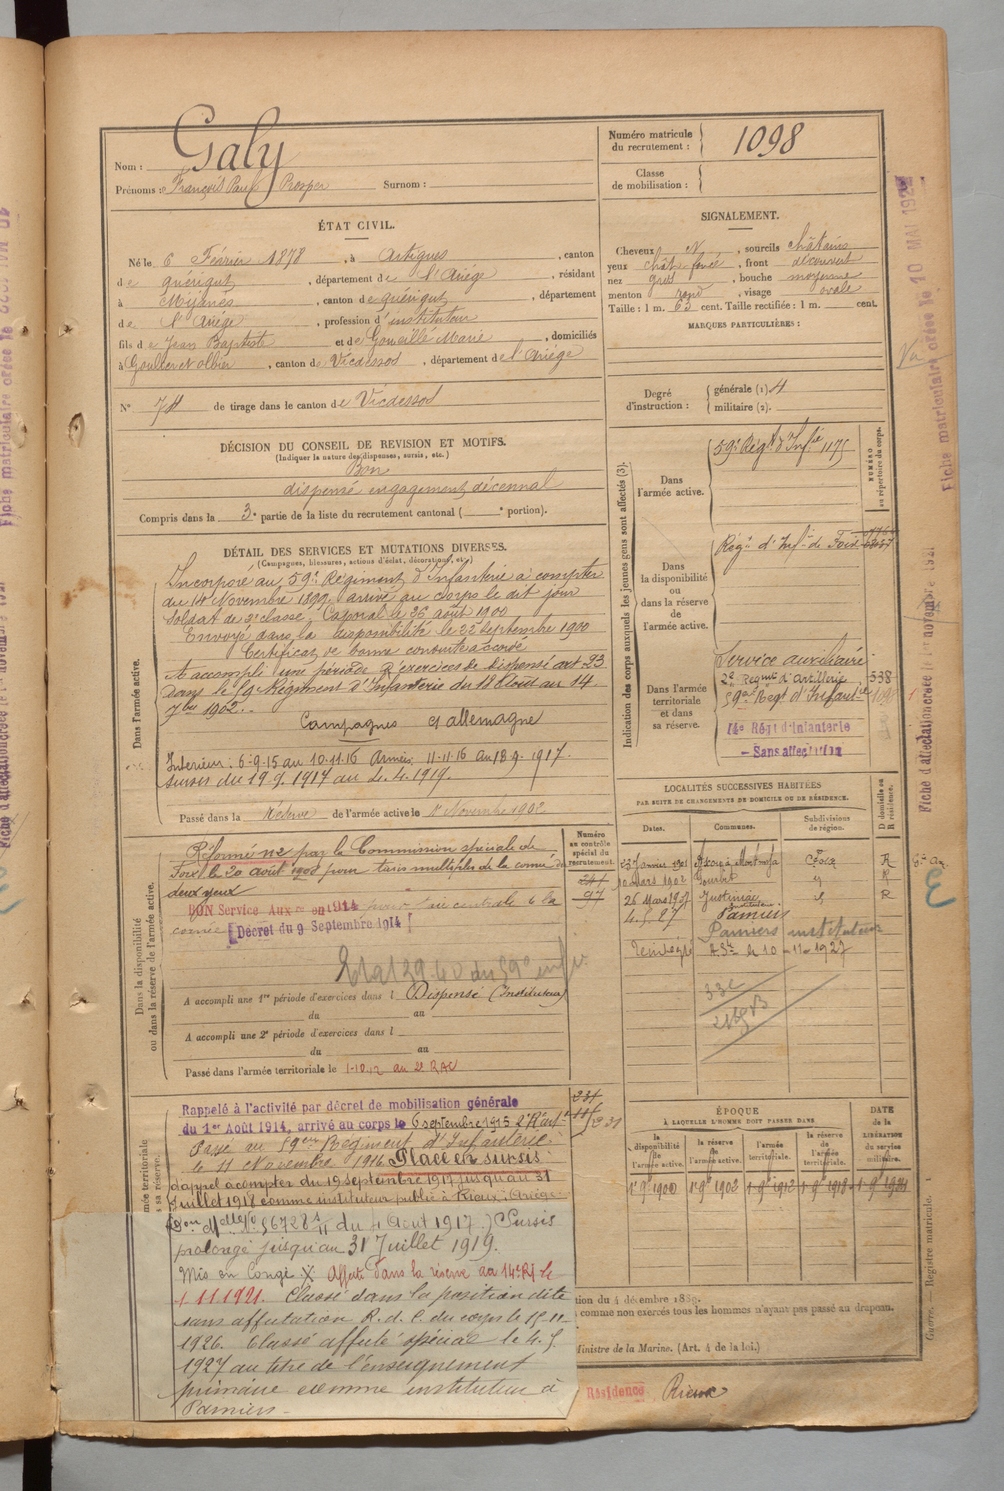 Nom : Galy
Prénoms : François Paul Prosper Surnom :
Numéro matricule du recrutement : 1098
Classe de mobilisation :
ÉTAT CIVIL.
Né le 6 Février 1878, à Artigues, canton
de quérigut, département de l'Ariège, résidant
à Mijanès, canton de quérigut, département
de l'Ariège, profession d'instituteur
fils de Jean Baptiste et de Gomeille Marie, domiciliés
à Goulier et Olbier, canton de Vicdessos, département de l'Ariège
N° 74 de tirage dans le canton de Vicdessos
SIGNALEMENT.
Cheveux N, sourcils châtains
yeux chât foncé, front découvert
nez gros, bouche moyenne
menton rond, visage ovale
Taille : 1 m. 63 cent. Taille rectifiée : 1 m. cent.
MARQUES PARTICULIÈRES :
Degré d'instruction : générale (1) 4
militaire (2).
DÉCISION DU CONSEIL DE REVISION ET MOTIFS.
(Indiquer la nature des dispenses, sursis, etc.)
Bon
dispensé engagement décennal
Compris dans la 3e partie de la liste du recrutement cantonal ( e portion).
DÉTAIL DES SERVICES ET MUTATIONS DIVERSES.
(Campagnes, blessures, actions d'éclat, décorations, etc.)
Dans l'armée active.
Incorporé au 59e Régiment d'Infanterie à compter
du 14 Novembre 1899. arrivé au corps le dit jour
Soldat de 2e classe. Caporal le 26 août 1900
Envoyé dans la disponibilité le 22 septembre 1900
Certificat de bonne conduite accordé
A accompli une période d'exercices de dispensé art 23
dans le 59e Régiment d'Infanterie du 18 Août au 14
7bre 1902.
Campagnes c/ allemagne
Intérieur : 6-9-15 au 10.11.16 Armées 11-11-16 au 18.9.1917.
Sursis du 19.9.1917 au 4.4.1919.
Passé dans la réserve de l'armée active le 1er Novembre 1902
Dans la disponibilité ou dans la réserve de l'armée active.
Réformé n°2 par la Commission spéciale de
Foix le 20 août 1908 pour taies multiples de la cornée des
deux yeux
BON Service Aux en 1914 pour taie centrale de la
cornée [Décret du 9 Septembre 1914]
A accompli une 1re période d'exercices dans l Dispensé (Instituteur)
du au
A accompli une 2e période d'exercices dans l
du au
Passé dans l'armée territoriale le 1-10.12 au 2e RAC
Numéro au contrôle spécial du recrutement.
97
Rappelé à l'activité par décret de mobilisation générale
du 1er Août 1914, arrivé au corps le 6 septembre 1915 2e R art
Passé au 59ème Régiment d'Infanterie
le 11 Novembre 1916 Placé en sursis
d'appel à compter du 19 septembre 1917 jusqu'au 31
Juillet 1918 comme instituteur public à Rieux : Ariège
(Don Melle N° 56728 du 4 Août 1917) Sursis
prolongé jusqu'au 31 Juillet 1919.
Mis en Congé X Affecté dans la réserve au 14e RI le
1.11.1921. Classé dans la position dite
sans affectation R. d. C. du corps le 15.11
1926. Classé affecté spécial le 4.5
1927 au titre de l'enseignement
primaire comme instituteur à
Pamiers.
Indication des corps auxquels les jeunes gens sont affectés (3).
NUMÉRO au répertoire du corps.
Dans l'armée active.
59e Régt d'Infie 1175
Dans la disponibilité ou dans la réserve de l'armée active.
Régt d'Infie de Foix
Dans l'armée territoriale et dans sa réserve.
Service auxiliaire
2e Régiment d'artillerie 538
59ème Régt d'Infanterie
14e Régt d'Infanterie
- Sans affectation
LOCALITÉS SUCCESSIVES HABITÉES
PAR SUITE DE CHANGEMENTS DE DOMICILE OU DE RÉSIDENCE.
Dates. Communes. Subdivisions de région. D domicile ou R résidence.
23 Janvier 1901 Foix R
10 Mars 1902 R
26 Mars 1907 Justiniac R
4.5.27 Pamiers
Pamiers instituteur
le 10-11-1927
ÉPOQUE
À LAQUELLE L'HOMME DOIT PASSER DANS
la disponibilité de l'armée active. la réserve de l'armée active. l'armée territoriale. la réserve de l'armée territoriale.
DATE de la LIBÉRATION du service militaire.
1er 9e 1900 1er 9e 1902 1er 9e 1912 1er 9e 1918
tion du 4 décembre 1889.
comme non exercés tous les hommes n'ayant pas passé au drapeau.
Ministre de la Marine. (Art. 4 de la loi.)
Résidence Rieux
Guerre. — Registre matricule.
Fiche matriculaire créée le 10 MAI 192
Fiche d'affectation créée le 1er novembre 1921